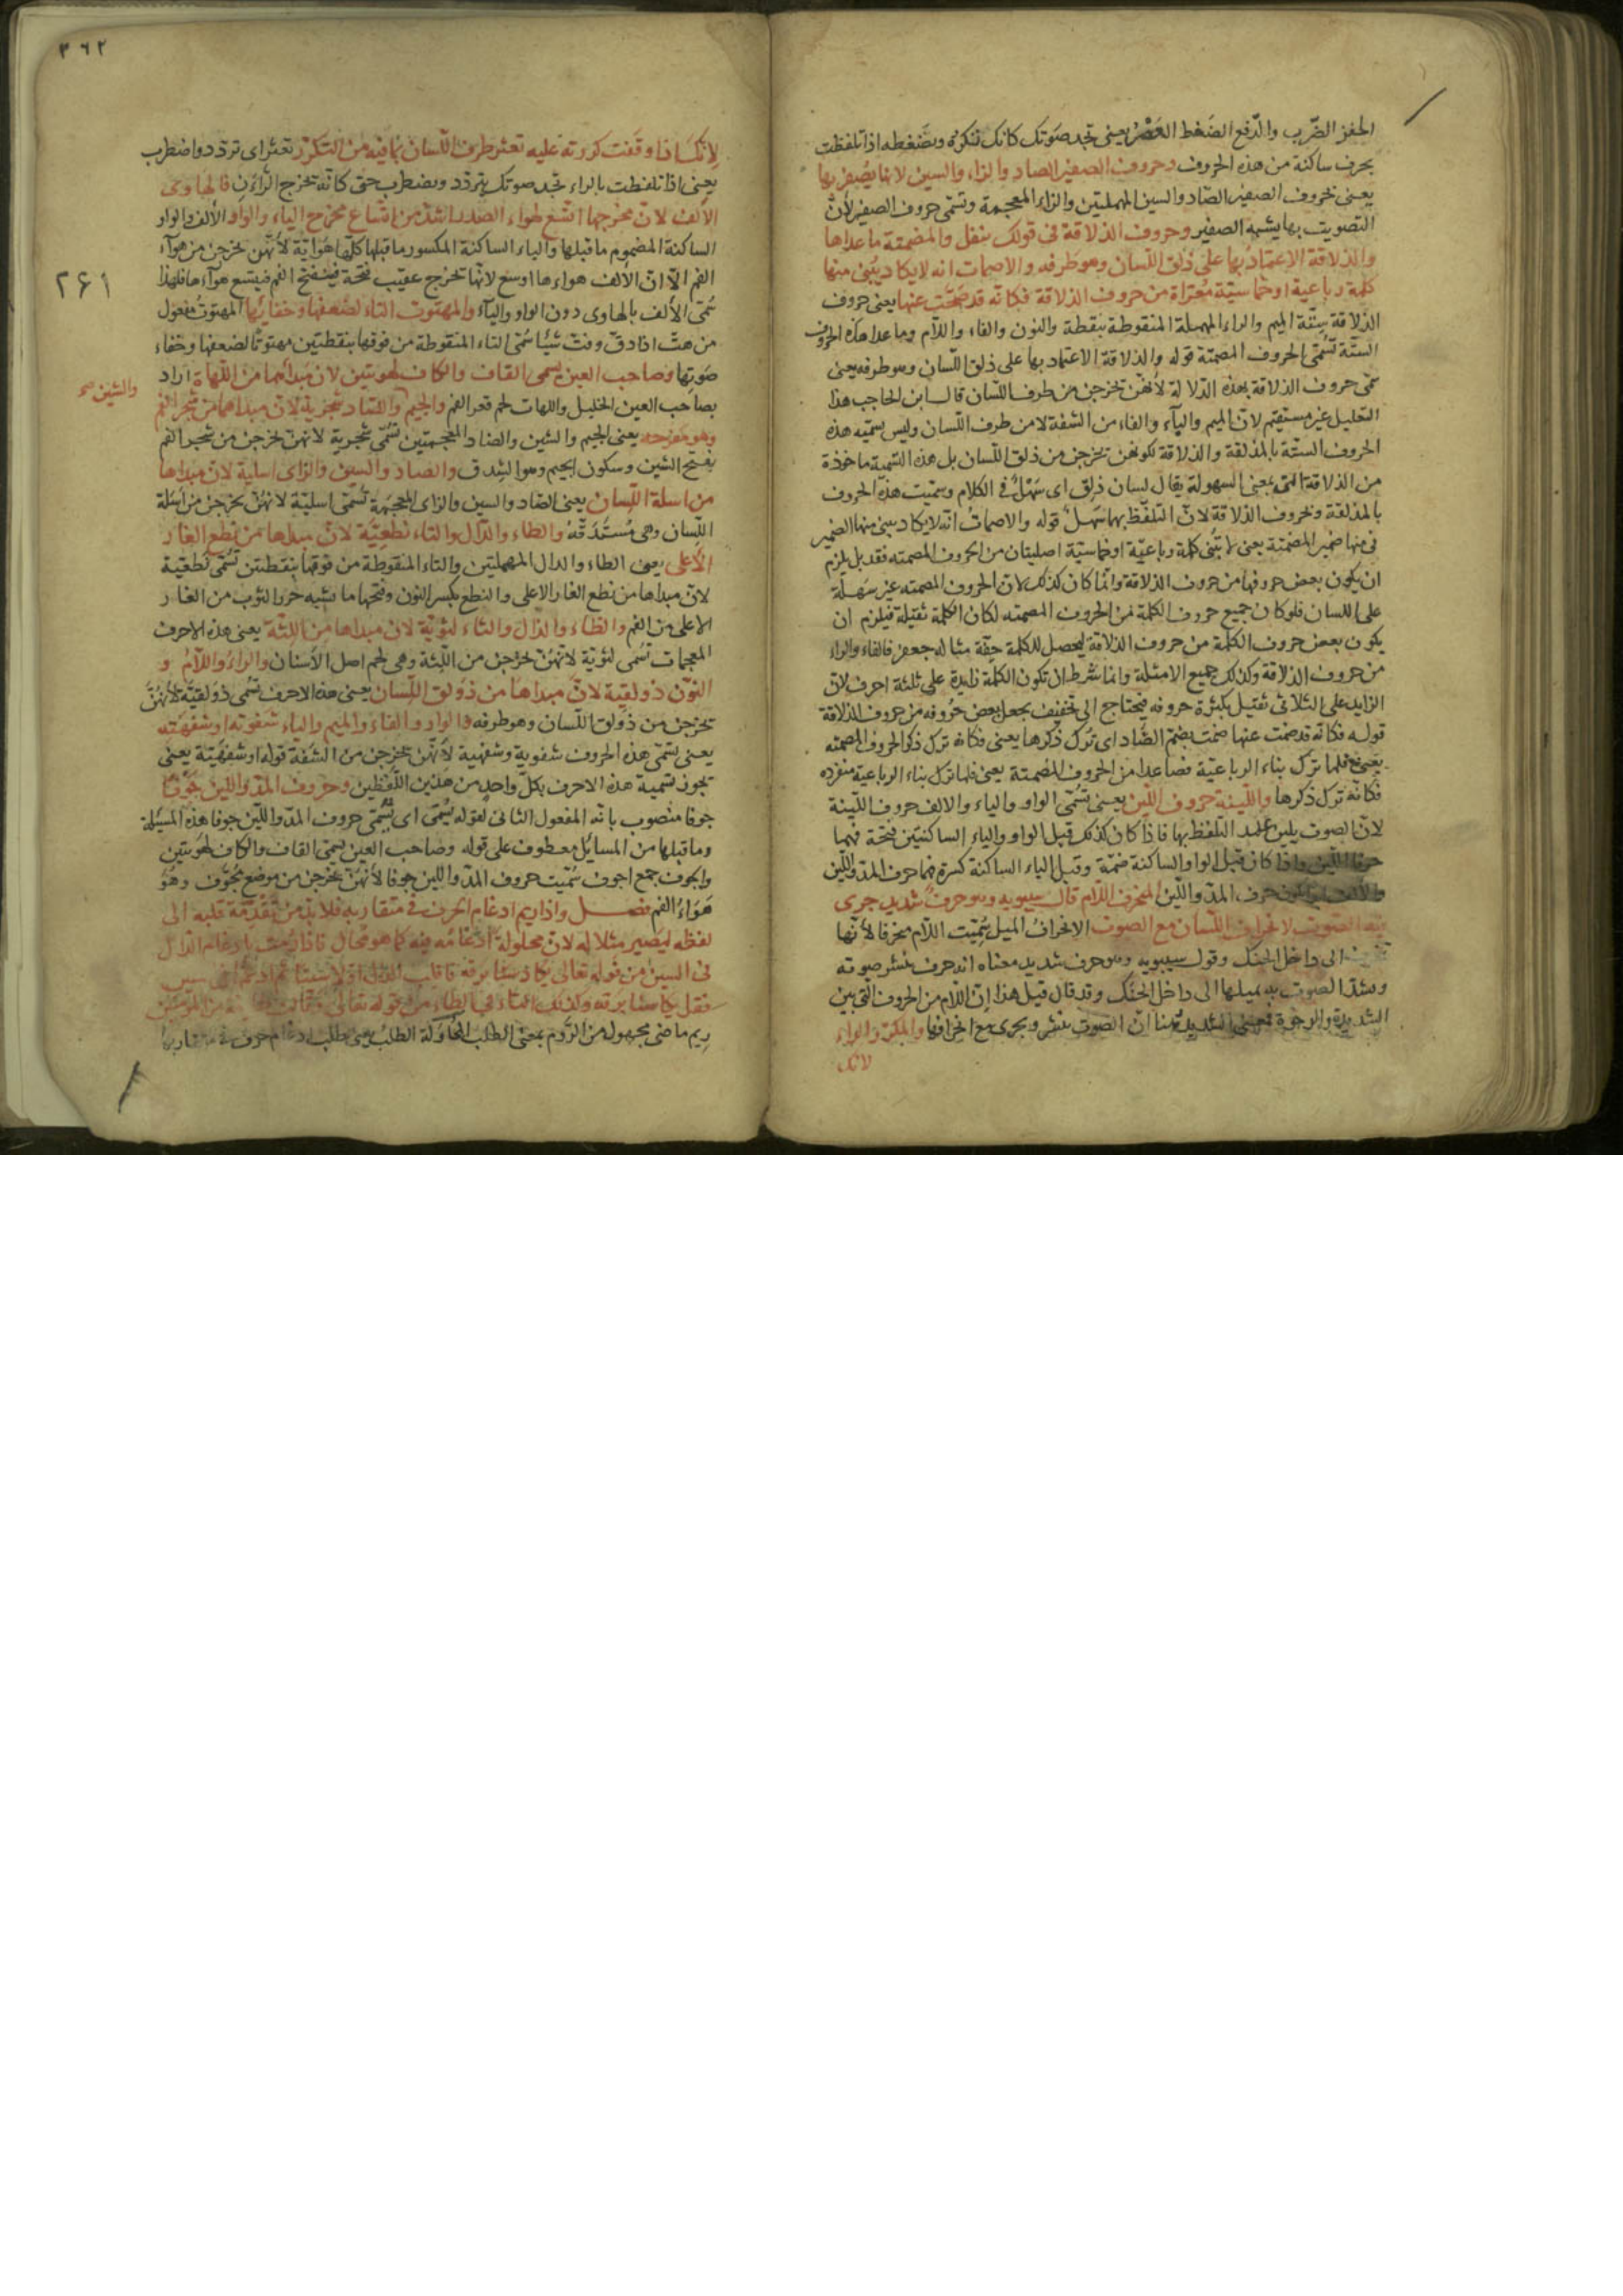 الحفز الضّرب والدّفع الضَغط العَصْر يعنى تجد صَوتك كانك تنكره وتضغطه اذا تلفظت
بحرف ساكنة من هذه الحروف وحروف الصفير الصاد والزاء والسين لانها يُصفر بها
يعنى حروف الصفير الصّاد والسين المهملتين والزاء المعجمة وتسمّى حروف الصفير لأنّ
التصويت بها يشبه الصفير وحروف الذلاقة فى قولك بنفل والمصمتة ما عداها
والذلاقة الاعتمادُ بها على ذلق اللّسان وهو طرفه والاصمات انه لايكاد يُبنى منها
كلمة رباعية او خماسيّة مُعرّاة من حروف الذلاقة فكانّه قد صُمّت عنها يعنى حروف
الذلاقة ستّة الميم والراء المهملة المنقوطة بنقطة والنون والفاء واللّام وما عدا هذه الحروف
الستّة تسُمّى الحروف المصمتة قوله والذلاقة الاعتماد بها على ذلق اللّسان وهو طرفه يعنى
سمّى حروف الذلاقة بهذه الدّلالة لأنهنّ تخرجن من طرف اللّسان قال ابن الحاجب هذا
التعليل غير مستقيم لانّ الميم والبآء والفاء من الشفة لا من طرف اللّسان وليس تسميّه هذه
الحروف الستّة بالمذلقة والذلاقة لكونهن تخرجن من ذلق اللّسان بل هذه التسمية ماخوذة
من الذلاقة التى بمعنى السهولة يقال لسان ذلِق اى سَهْلٌ فى الكلام وسمّيت هذه الحروف
بالمذلقة وحروف الذلاقة لانّ التلفّظ بها سَهلٌ قوله والاصماتُ انّه لايكاد يبنى منها الضمير
فى منها ضمير المصمتة يعنى لا يُبْنى كلمة رباعيّة او خماسيّة اصليتان من الحروف المصمته فقد بل يلزم
ان يكون بعض حروفها من حروف الذلاقة وانّما كان كذلك لانّ الحروف المصمته غير سَهلة
على اللسان فلو كان جميع حروف الكلمة من الحروف المصمته لكان الكلمة ثقيلة فيلزم ان
يكون بعض حروف الكلمة من حروف الذلاقة ليحصل للكلمة خِفّة مثاله جعفر فالفاء والراء
من حروف الذلاقة وكذلك جميع الامثلة وانما شرط ان تكون الكلمة زايدة على ثلثة احرف لانّ
الزايد على الثلاثى ثقيل بكثرة حروفه فيحتاج الى تخفيف بجعل بعض حُروفه من حروف الذلاقة
قوله فكانّه قد صمت عنها صمت بضمّ الصّاد اى تُرك ذكرها يعنى فكانه ترك ذكر الحروف المصمته
يعنى فلما ترك بناء الرباعيّة فصاعدا من الحروف المصمتة يعنى فلما ترك بناء الرباعيّة منفرده
فكانّه ترك ذكرها واللّينة حروف اللّين يعنى تسُمّى الواو والياء والالف حروف اللّينة
لانّ الصوت يلين عند التلفظ بها فاذا كان كذلك قبل الواو والياء الساكنتين فتحة فهما
حرفا اللّين واذا كان قبل الواو الساكنة ضمّة وقبل الياء الساكنة كسرة فهما حرف المدّ واللّين
والالف حرف المدّ واللّين المنحرف اللّام قال سيبويه وهو حرفٌ شديد جرى
فيه الصّوت لانحراف اللّسان مع الصوت الانحرافُ الميل سُمّيت اللّام منحرفا لأنّها
الى داخل الحنك وقول سيبويه وهو حرف شديد معناه انه حرف ينشر صوته
ويشدّ الصّوت به بميلها الى داخل الحنَك وقد قال قيل هذا إنّ اللّام من الحروف التى بين
الشديدة والرخوة فمعنى الشديد هنا انّ الصوت ينشر ويجرى مع انحرافها والمكرّر الراء
لانك
٣٦٢
لانك اذا وقفت كررته عليه تعثر طرف اللّسان بما فيه من التكرّر تعثر اى تردّد واضطرب
يعنى اذا تلفظت بالراء تجد صوتك يتردّد ويضطرب حتى كانّه تخرج الراءين فالهاوى
الألف لانّ مخرجها اتسع لهواء الصدر اشدّ من اتساع مخرج الياء والواو الألف والواو
الساكنة المضموم ما قبلها والياء الساكنة المكسور ما قبلها كلّها هوائيّة لأنّهنّ تخرجن من هوآء
الفم الّا انّ الألف هواءها اوسع لانّها تخرج عقيب فتحة فينفتح الفم فيتسع هوآءها فلهذا
٢٦١
سُمّى الألف بالهاوى دون الواو واليآء والمهتوت التاء لضعفها وخفايها المهتوتُ مفعول
من هتّ اذا دقّ وفتّ شيئا سُمّى التاء المنقوطة من فوقها بنقطتين مهتوتا لضعفها وخفاء
صَوتها وصاحب العين يسمى القاف والكاف لهويتين لان مَبدأهما من اللّهاة اراد
بصاحب العين الخليل واللهات لحم قعر الفم والجيم والضاد شجريّة لانّ مبداهما من شجر الفم
والشين صح
وهو مفرجه يعنى الجيم والشين والضاد المعجمتين تسُمّى شجرية لانهنّ تخرجن من شجر الفم
بفتح الشين وسكون الجيم وهو الشِدق والصاد والسين والزاى اسلية لانّ مبداها
من اسلة اللّسان يعنى الصّاد والسين والزاى المعجمة تسُمّى اسليّة لانهُنّ تخرجن من اَسَلة
اللّسان وهى مُستَدَقّهُ والطاء والدّال والتاء نطعيّة لانّ مبداها من نطع الغار
الأعلى يعنى الطاء والدال المهملتين والتاء المنقوطة من فوقها بنقطتين تسُمّى نطعية
لانّ مبداها من نطع الغار الاعلى والنطع بكسر النون وفتحها ما يشبه خرز الثوب من الغار
الاعلى من الفم والظاء والذال والثاء لثويّة لانّ مبداها من اللثّة يعنى هذه الاحرف
المعجمات تسُمى لثويّة لانّهنّ تخرجن من اللّثة وهى لحم اصل الأسنان والراءُ واللّامُ و
النوّن ذولقية لانّ مبداها من ذَولق اللّسان يعنى هذه الاحرف تسُمى ذولقيّة لأنهُنَّ
تخرجن من ذولق اللّسان وهو طرفه والواو والفاء والميم والباء شفوّية او شفهيّه
يعنى تسمّى هذه الحروف شفوية وشفهية لأنّهنّ تخرجن من الشفة قوله او شفهيّة يعنى
تجوز تسمية هذه الاحرف بكلّ واحدٍ من هذين اللّفظين وحروف المدّ واللين جُوْفًا
جوفا منصوب بانّه المفعول الثانى لقوله يُسَمّى اى تُسُمّى حروف المدّ واللّين جوفا هذه المسئلة
وما قبلها من المسائل معطوف على قوله وصاحب العين يسمّى القاف والكاف لهَويتين
والجوف جمع اجوف سُمّيت حروف المدّ واللين جوفا لأنهُنّ تخرجن من موضع مجُوّف وهُوَ
هَوَاءُ الفم فصل واذا ريم ادغام الحرف فى متقاربه فلا بدّ من تقدّمة قلبه الى
لفظه ليَصير مثلا له لانّ محلولة ادغامه فيه كما هو محال فاذا رُمت ادغام الدّال
فى السين من قوله تعالى يكاد سنا برقه فاقلب الدال اوّلا سينا ثم ادغمها فى سين
فقل يكا سّنا برقه وكذلك التاء فى الطاء من قوله تعالى وقالت طايفة من المؤمنين
رِيم ماضى مجهول من الرَّوم بمعنى الطلب المحُاوَلة الطلبُ يعنى طلب ادغام حرف فى متقاربه